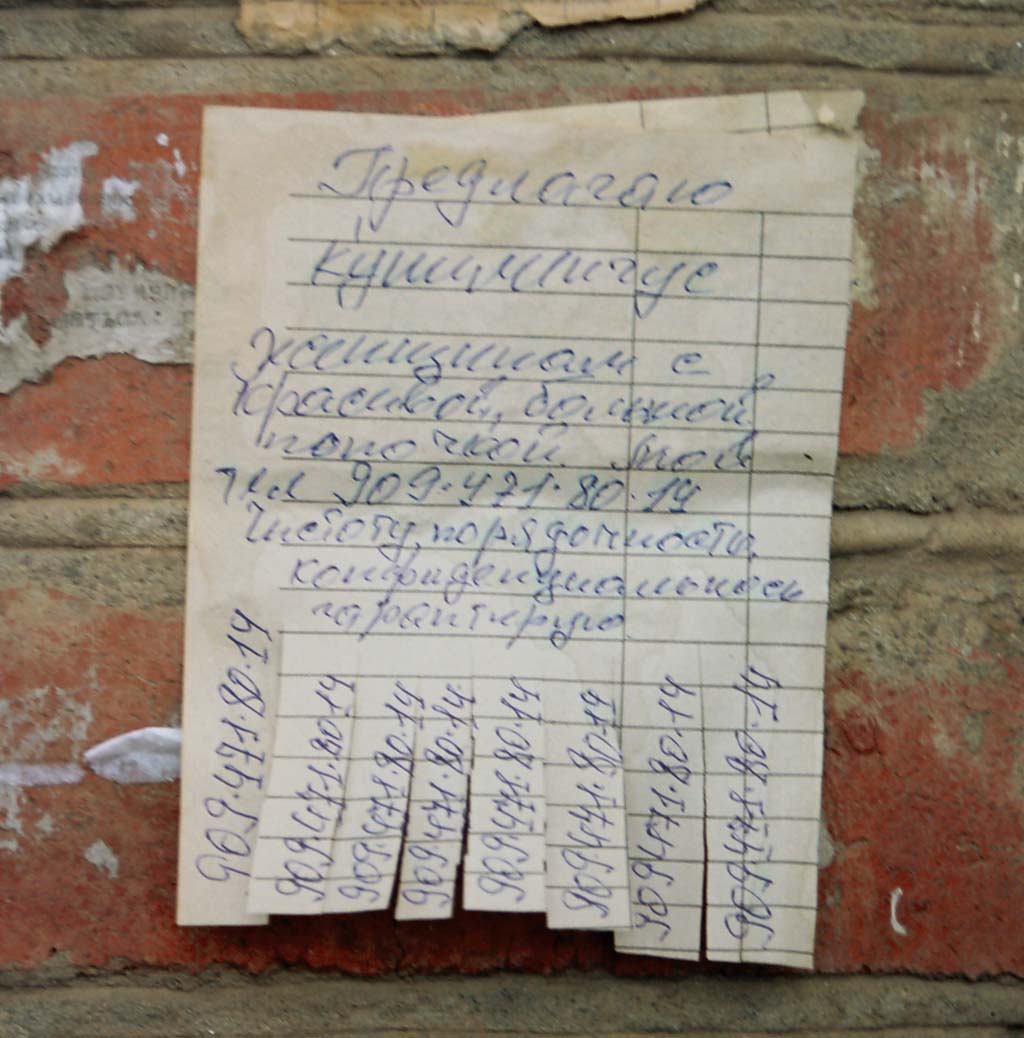 Предлагаю
кунилингус
женщинам с
красивой, большой
попочкой.
тел 909.471.80.14
Чистоту, порядочность,
конфиденциальность
гарантирую
909.471.80.14
909.471.80.14
909.471.80.14
909.471.80.14
909.471.80.14
909.471.80.14
909.471.80.14
909.471.80.14